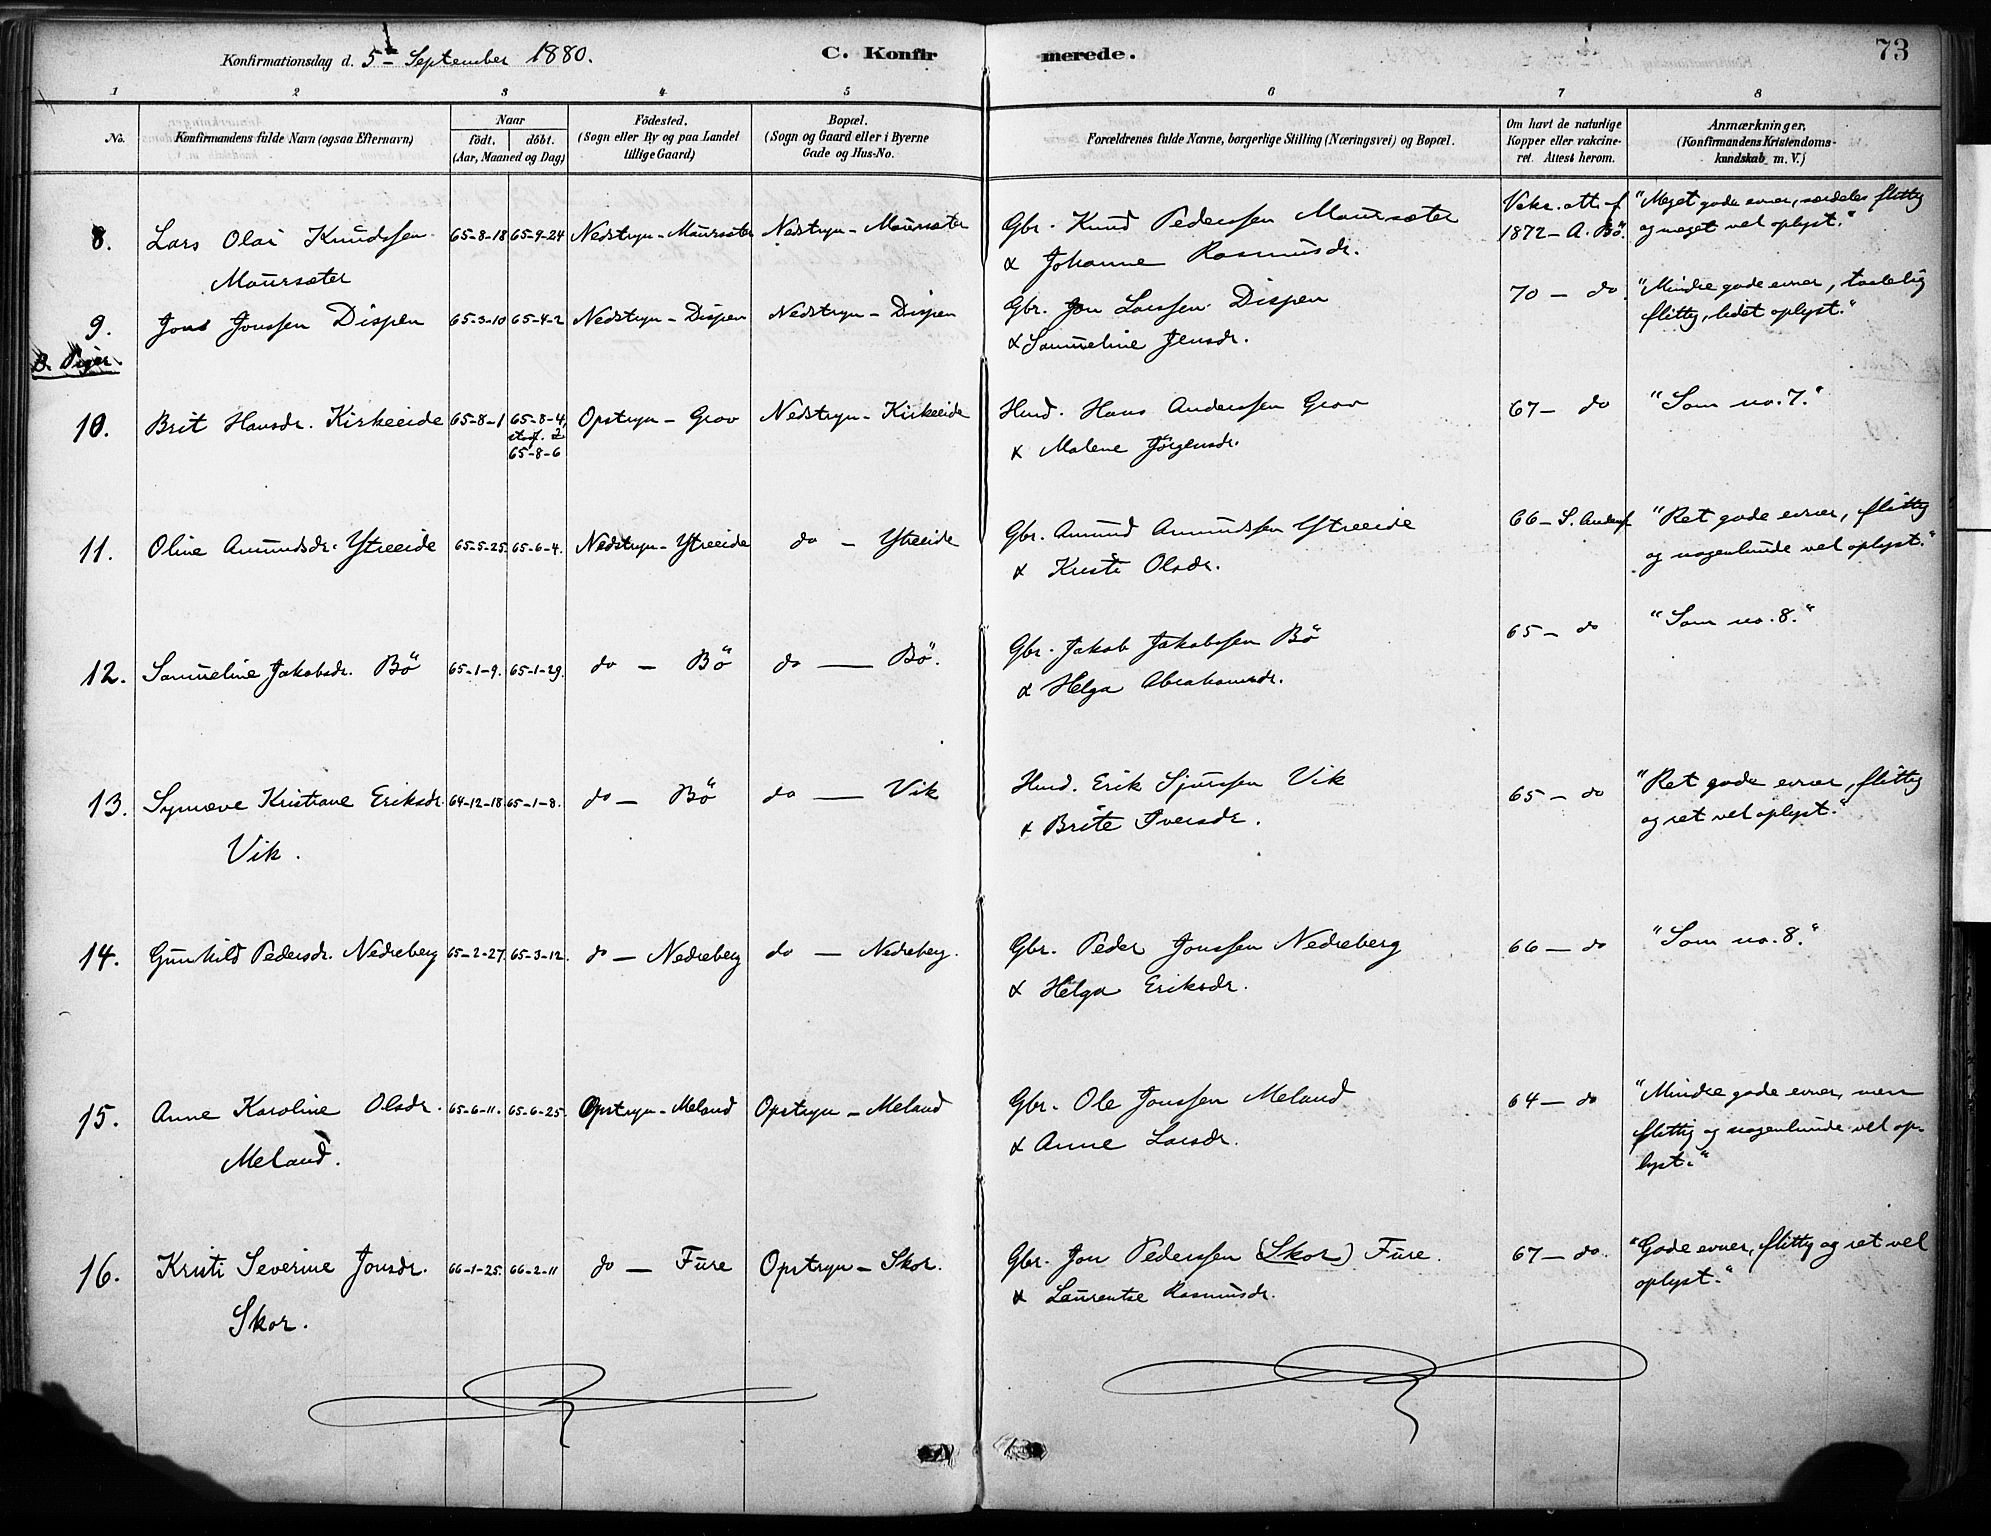 Konfirmationsdag d. 5te September 1880. C. Konfirmerede. 73
1 2 3 4 5 6 7 8
No. Konfirmandens fulde Navn (ogsaa Efternavn) Naar födt. döbt. (Aar, Maaned og Dag) Födested. (Sogn eller By og paa Landet tillige Gaard) Bopæl. (Sogn og Gaard eller i Byerne Gade og Hus-No. Forældrenes fulde Navne, borgerlige Stilling (Næringsvei) og Bopæl. Om havt de naturlige Kopper eller vakcineret. Attest herom. Anmærkninger, (Konfirmandens Kristendomskundskab m. V.)
8. Lars Olai Knudssen 65-8-18 65-9-24 Nedstryn - Maursæter Nedstryn - Maursæter Gbr. Knud Pederssen Maursæter Vakc. att. f. "Meget gode evner, særdeles flittig
Maursæter & Johanne Rasmusdr. 1872 - A. Bö. og meget vel oplyst."
9. Jons Jonssen Dispen 65-3-10 65-4-2 Nedstryn - Dispen Nedstryn - Dispen Gbr. Jon Larssen Dispen 70 - do. "Mindre gode evner, taalelig
& Samueline Jensdr. flittig, lidet oplyst."
B. Piger.
10. Brit Hansdr. Kirkeeide 65-8-1 65-8-4, Opstryn - Grov Nedstryn - Kirkeeide Husd. Hans Anderssen Grov 67 - do "Som no. 7."
65-8-6 & Malene Jörgensdr.
11. Oline Amundsdr. Ytreeide 65-5-25 65-6-4. Nedstryn - Ytreeide do - Ytreeide Gbr. Amund Amundssen Ytreeide 66 - S. Anders. "Ret gode evner, flittig
& Kristi Olsdr. og nogenlunde vel oplyst."
12. Samueline Jakobsdr. Bö 65-1-9. 65-1-29. do - Bö do - Bö. Gbr. Jakob Jakobssen Bö 65 - do "Som no. 8."
& Helga Abrahamsdr.
13. Synneve Kristiane Eriksdr. 64-12-18 65-1-8. do - Bö do - Vik Husd. Erik Sjurssen Vik 65 - do "Ret gode evner, flittig
Vik. & Brite Iversdr. og ret vel oplyst."
14. Gunhild Pedersdr. Nedreberg 65-2-27 65-3-12. do - Nedreberg do - Nedreberg. Gbr. Peder Jonssen Nedreberg 66 - do "Som no. 8."
& Helga Eriksdr.
15. Anne Karoline Olsdr. 65-6-11. 65-6-25. Opstryn - Meland Opstryn - Meland Gbr. Ole Jonssen Meland 64 - do "Mindre gode evner, men
Meland. & Anne Larsdr. flittig og nogenlunde vel op-
lyst."
16. Kristi Severine Jonsdr. 66-1-25. 66-2-11 do - Fure Opstryn - Skor. Gbr. Jon Pederssen (Skor) Fure. 67 - do. "Gode evner, flittig og ret vel
Skor. & Laurentse Rasmusdr. oplyst."